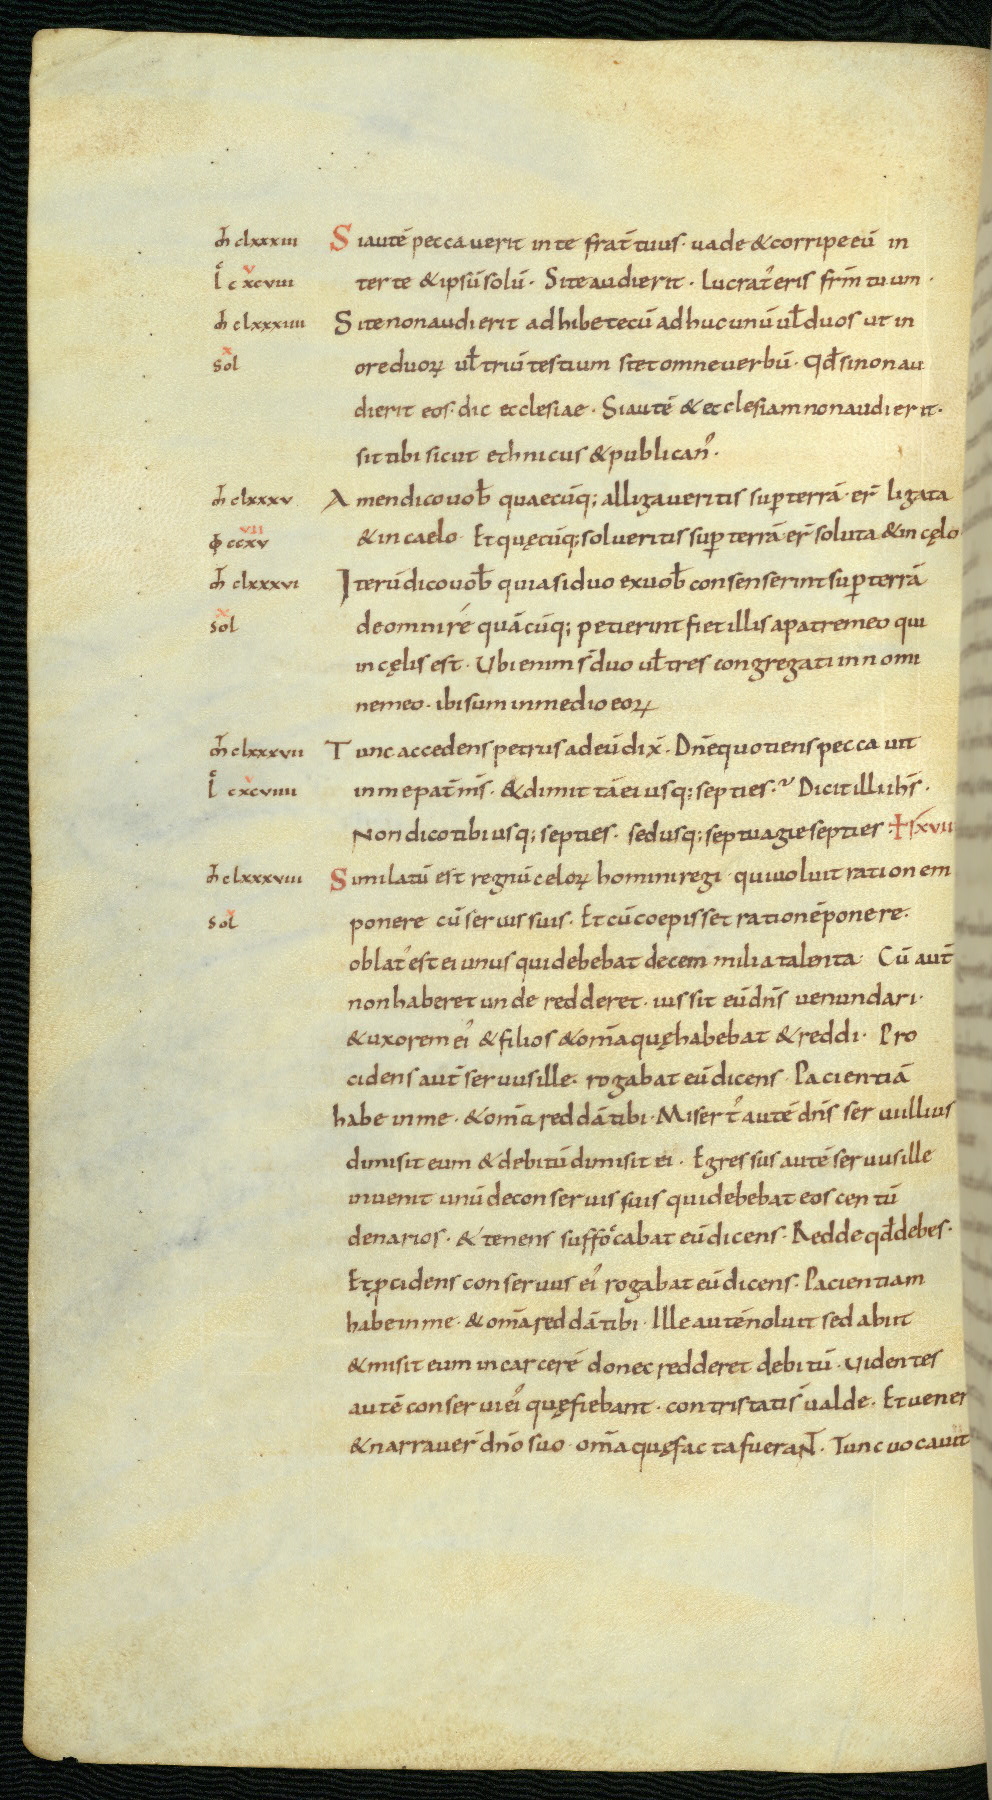 m̄ clxxxiii Siautē peccauerit in te frat̄ tuus · uade & corripe eū in
v
l̊ cxcviii ter te & ipsū solū · Si te audierit · Lucrat᾽ eris frm̄ tuum ·
m̄ clxxxiiii Si te non audierit adhibe tecū adhuc unū ul̄ duos ut in
x
sol ore duoꝝ ul̄ triū testium stet omne uerbū · Qd̄ si non au
dierit eos · dic ecclesiae · Si autē & ecclesiam non audierit ·
sit tibi sicut ethnicus & publican᾽ ·
m̄ clxxxv Amen dico uob̄ quaecūq; alligaueritis suꝑ terrā · er̄ ligata
vii
ϕ ccxv & in caelo · Et quęcūq; solueritis suꝑ terrā er̄ soluta & in cęlo
m̄ clxxxvi Iterū dico uob̄ quia si duo ex uob̄ consenserint suꝑ terrā
x
sol de omni ré quācūq; petierint fiet illis a patre meo qui
in cęlis est · Ubi enim s̄ duo ul̄ tres congregati in nomi
ne meo · ibi sum in medio eoꝝ
m̄ clxxxvii Tunc accedens petrus ad eū dix̄ · Dn̄e quotiens peccauit
v
l̊ cxcviiii in me pat̄ m̄s · & dimittā ei usq; septies · Dicit illi ih̄s ·
Non dico tibi usq; septies · sed usq; septuagie septies · ⸭ lxvii
m̄ clxxxviii Similatū est regnū celoꝝ homini regi · qui uoluit rationem
x
sol ponere cū seruis suis · Et cū coepisset rationē ponere ·
oblat᾽ est ei unus qui debebat decem milia talenta · Cū aut̄
non haberet unde redderet · iussit eū dn̄s uenundari ·
& uxorem ei᾽ & filios & om̄a quę habebat & reddi · Pro
cidens aut̄ seruus ille · rogabat eū dicens · Pacientiā
habe in me · & om̄a reddā tibi · Misert᾽ autē dn̄s serui illius
dimisit eum & debitū dimisit ei · Egressus autē seruus ille
inuenit unū de conseruis suis qui debebat eos centū
denarios · & tenens suffocabat eū dicens · Redde qd̄ debes ·
Et ꝓcidens conseruus ei᾽ rogabat eū dicens · Pacientiam
habe in me · & om̄a reddā tibi · Ille autē noluit sed abiit
& misit eum in carceré donec redderet debitū · Uidentes
autē conserui ei᾽ quę fiebant · contristati s̄ ualde · Et uener
& narrauer̄ dn̄o suo · om̄a quę facta fuerant · Tunc uocauit